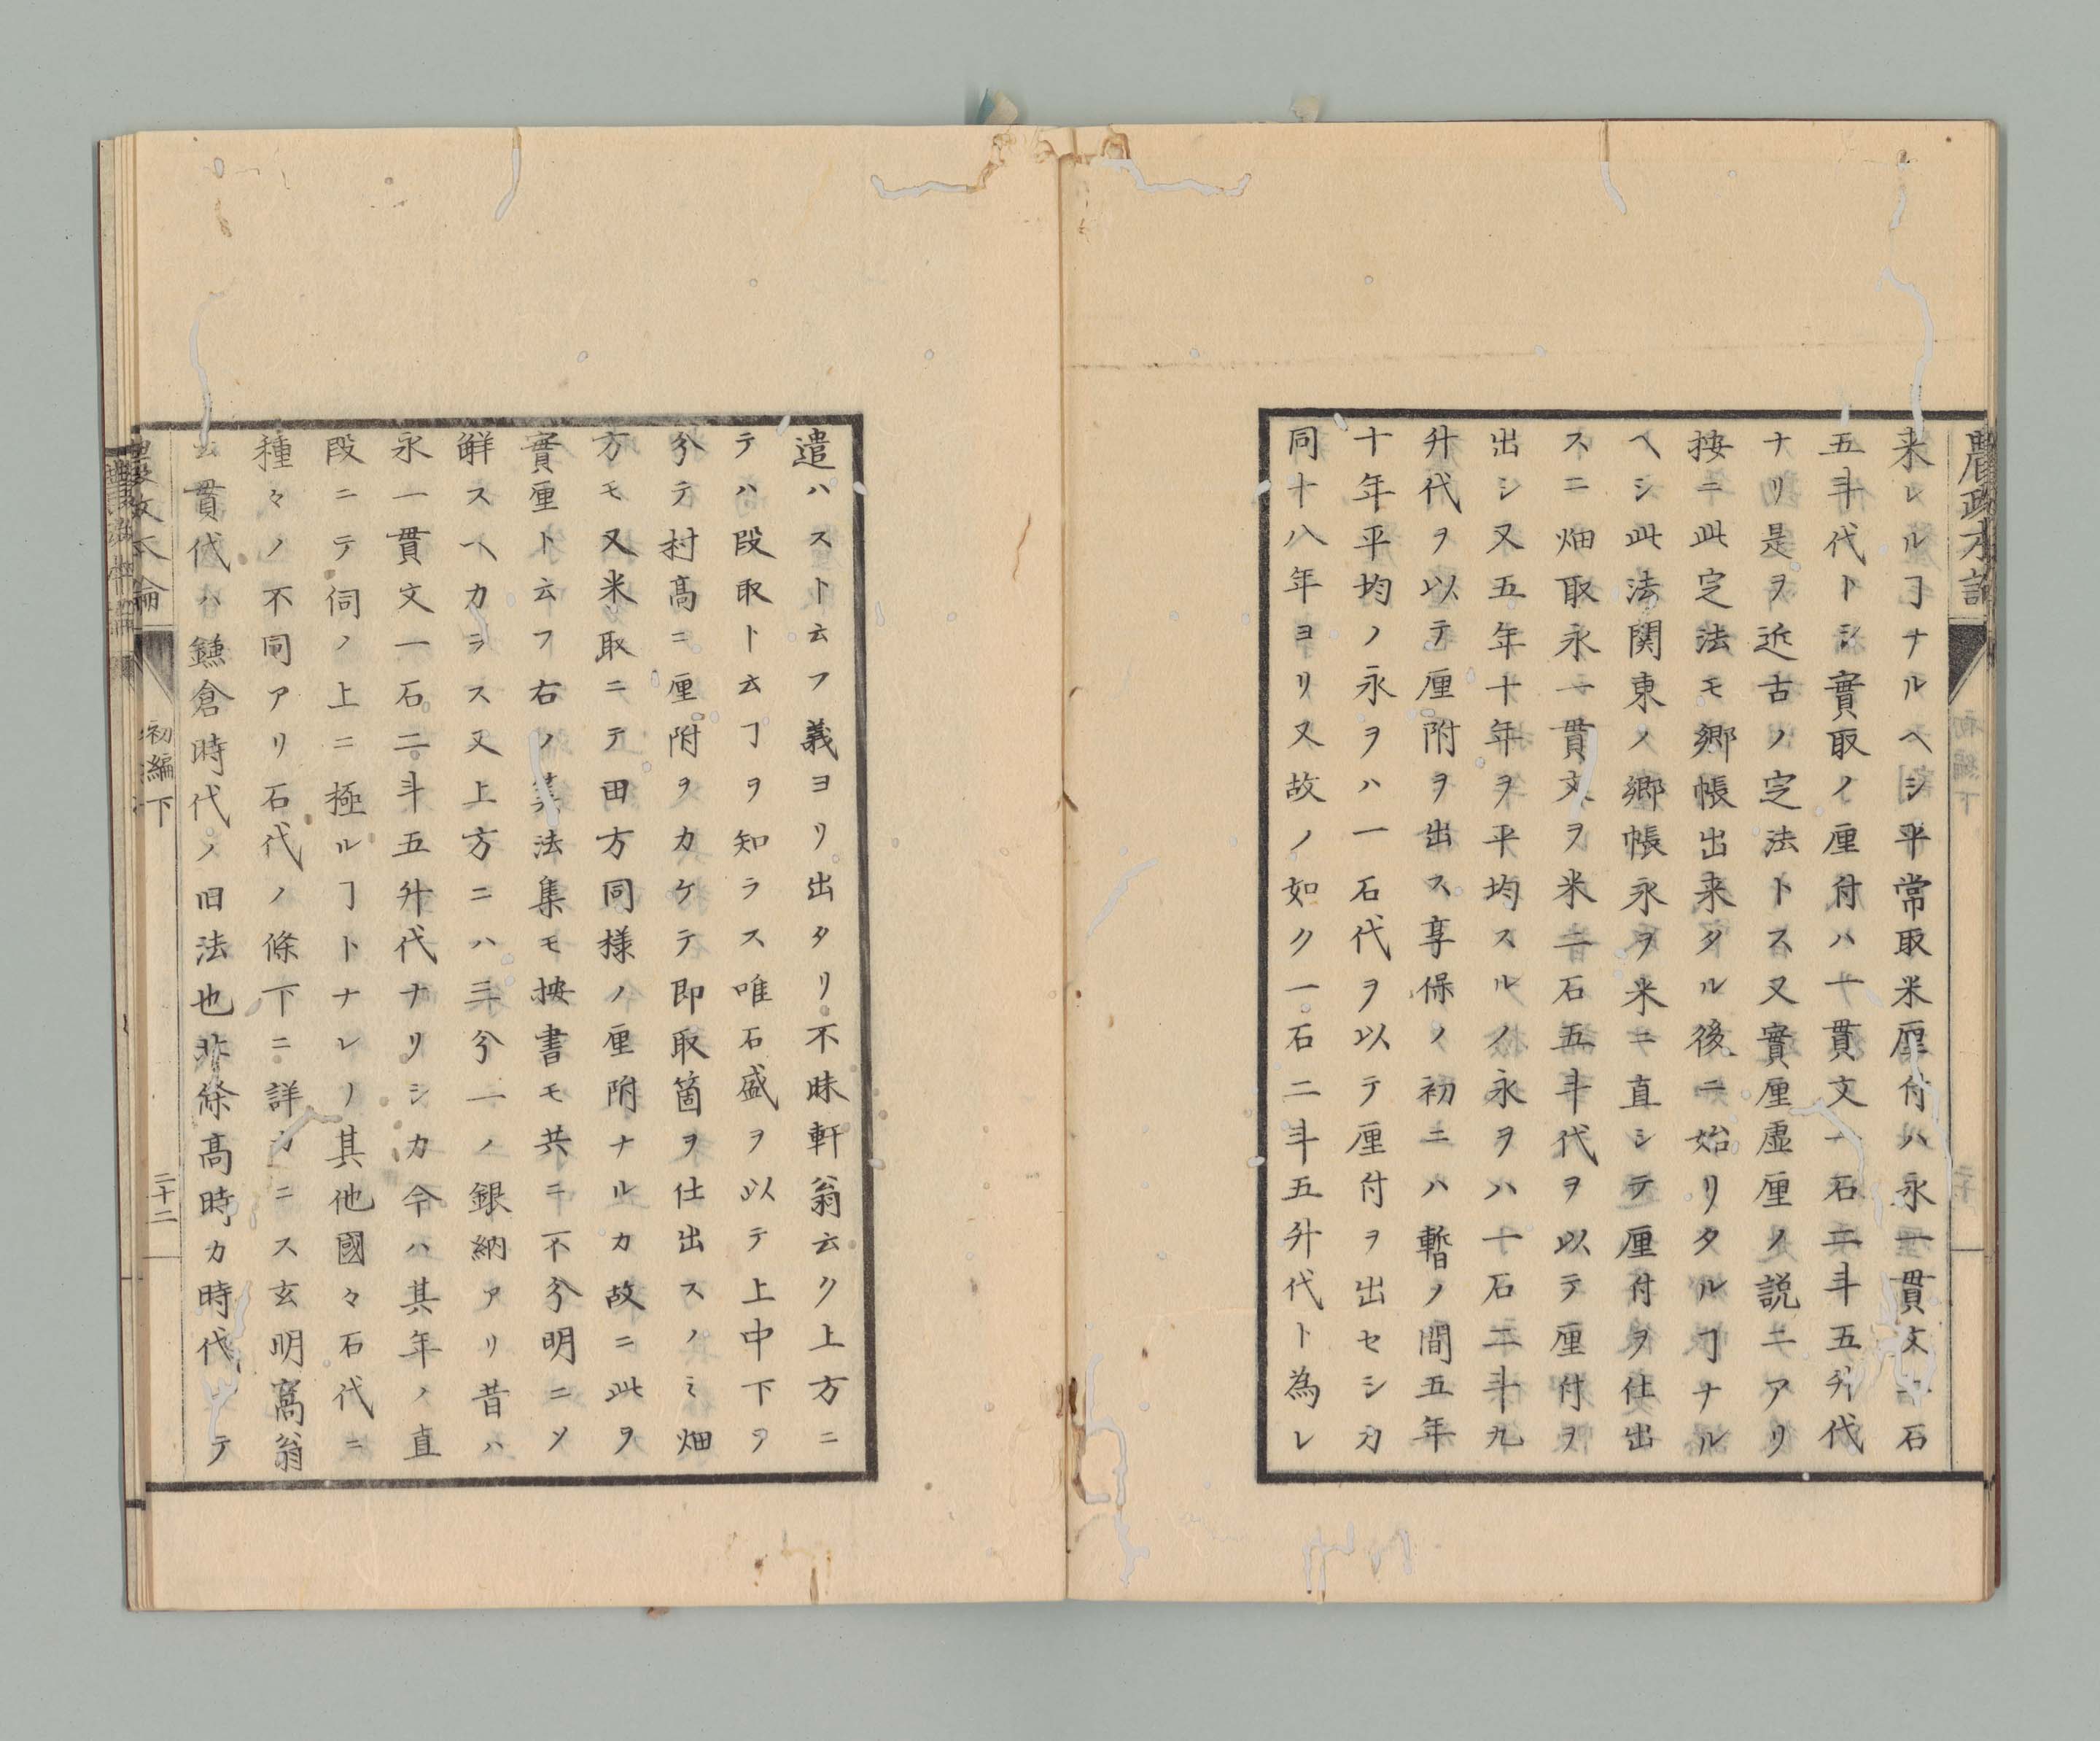 来レルヿナルヘシ平常取米厘付ハ永一貫文一石
五斗代トシ實取ノ厘付ハ一貫文一石二斗五升代
ナリ是ヲ近古ノ定法トス又實厘虚厘ノ説ニアリ
按ニ此定法モ郷帳出来タル後ニ始リタルヿナル
ヘシ此法関東ノ郷帳永ヲ米ニ直シテ厘付ヲ仕出
スニ畑取永一貫文ヲ米二石五斗代ヲ以テ厘付ヲ
出シ又五年十年ヲ平均スルノ永ヲハ一石二斗九
升代ヲ以テ厘附ヲ出ス享保ノ初ニハ暫ノ間五年
十年平均ノ永ヲハ一石代ヲ以テ厘付ヲ出セシカ
同十八年ヨリ又故ノ如ク一石二斗五升代ト為レ
遣ハスト云フ義ヨリ出タリ不昧軒翁云ク上方ニ
テハ段取ト云ヿヲ知ラス唯石盛ヲ以テ上中下ヲ
分テ村高ニ厘附ヲカケテ即取箇ヲ仕出スノミ畑
方モ又米取ニテ田方同様ノ厘附ナルカ故ニ此ヲ
實厘ト云フ右ノ算法集モ按書モ共ニ不分明ニメ
鮮スヘカラス又上方ニハ三分一ノ銀納アリ昔ハ
永一貫文一石二斗五升代ナリシカ今ハ其年ノ直
段ニテ伺ノ上ニ極ルヿトナレリ其他國々石代ニ
種々ノ不同アリ石代ノ條下ニ詳カニス玄明窩翁
云貫代ハ鎌倉時代ノ旧法也北條高時カ時代ニテ
農政本論
初編下
二十二